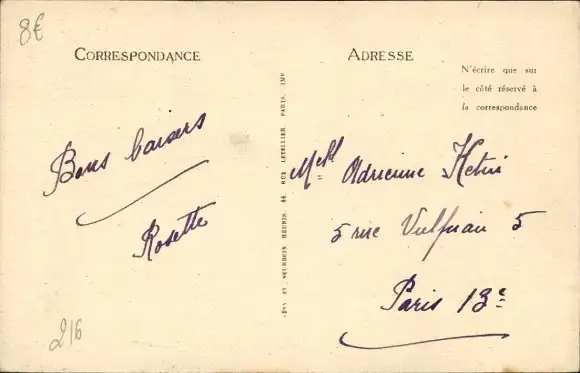 8€
CORRESPONDANCE
ADRESSE
N'écrire que sur
le côté réservé à
la correspondance
Bons baisers
Rosette
Melle Adrienne
5 rue Vulpian 5
Paris 13e
216
ET SEURDEIN RÉUNIS, 44, RUE LETELLIER, PARIS, IMP